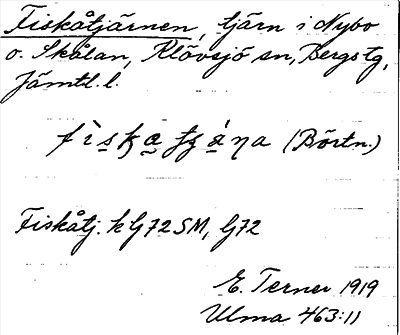 Fiskåtjärnen, tjärn i Nybo
o. Skålan, Klövsjö sn, Bergs tg,
Jämtl. l.
(Börtn.)
Fiskåtj. k G72 SM, G72
E. Terner 1919
Ulma 463:11